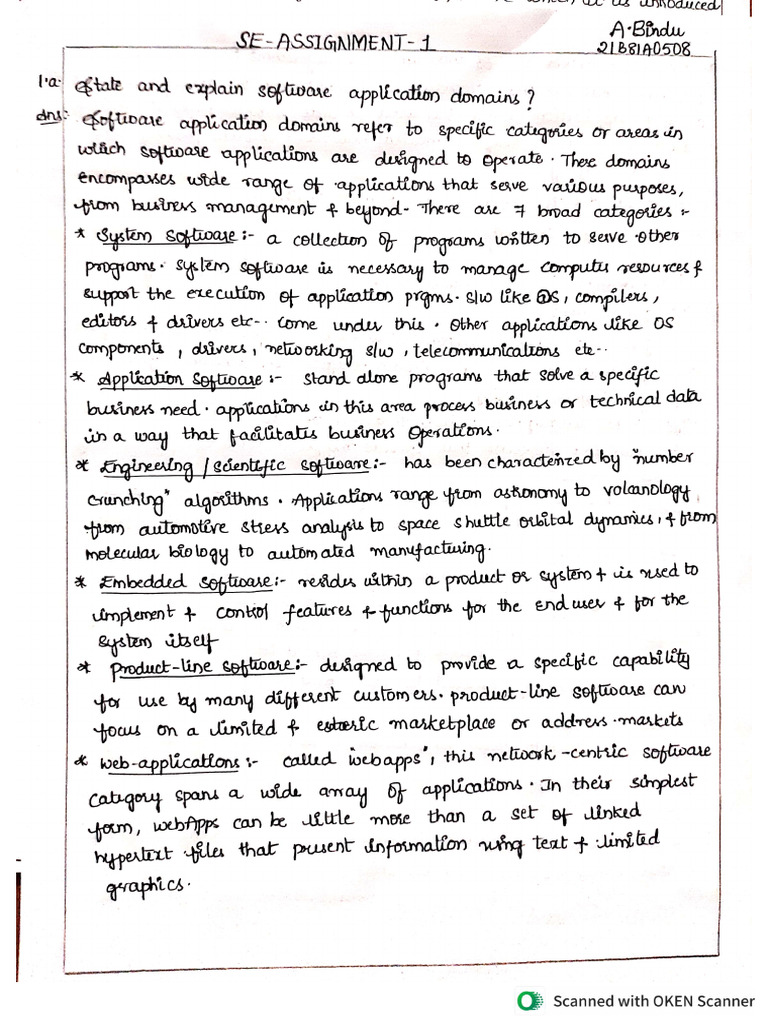 which it is introduced
A.Bindu
SE-ASSIGNMENT-1
21B81A0508
1.a. State and explain software application domains?
Ans: Software application domains refer to specific categories or areas in
which software applications are designed to operate. These domains
encompasses wide range of applications that serve various purposes,
from business management & beyond. There are 7 broad categories :-
* System Software :- a collection of programs written to serve other
programs. System software is necessary to manage computer resources &
support the execution of application prgms. s/w like OS, compilers,
editors & drivers etc.. come under this. Other applications like OS
components, drivers, networking s/w, telecommunications etc..
* Application Software :- stand alone programs that solve a specific
business need. applications in this area process business or technical data
in a way that facilitates business operations.
* Engineering / Scientific software :- has been characterized by "number
crunching" algorithms. Applications range from astronomy to volcanology
from automotive stress analysis to space shuttle orbital dynamics, & from
molecular biology to automated manufacturing.
* Embedded Software :- resides within a product or system & is used to
implement & control features & functions for the end user & for the
system itself
* Product-line software :- designed to provide a specific capability
for use by many different customers. product-line software can
focus on a limited & esoteric marketplace or address markets
* Web-applications :- called "webapps", this network-centric software
category spans a wide array of applications. In their simplest
form, webApps can be little more than a set of linked
hypertext files that present information using text & limited
graphics.
Scanned with OKEN Scanner